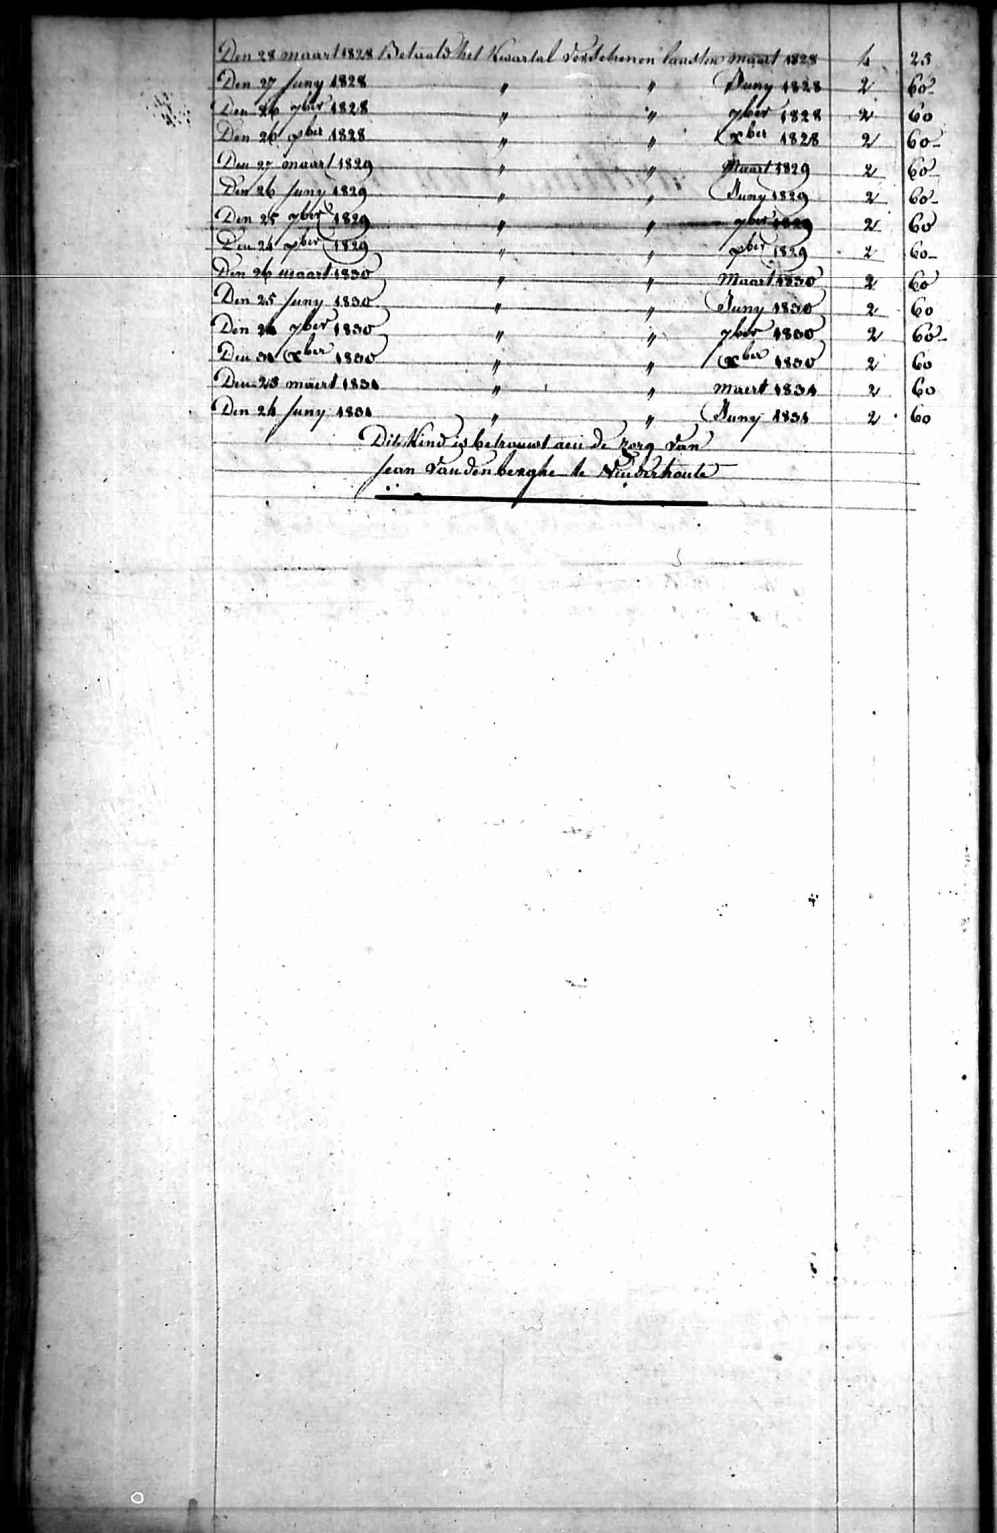 Den 28 maart 1828 Betaald het Kwartal verschenen laasten maart 1828 4 23
Den 27 Juny 1828 " " Juny 1828 2 60
Den 26 7ber 1828 " " 7ber 1828 2 60
Den 26 xber 1828 " " xber 1828 2 60
Den 27 maart 1829 " " Maart 1829 2 60
Den 26 Juny 1829 " " Juny 1829 2 60
Den 25 7ber 1829 " " 7ber 1829 2 60
Den 24 xber 1829 " " xber 1829 2 60
Den 26 maart 1830 " " Maart 1830 2 60
Den 25 Juny 1830 " " Juny 1830 2 60
Den 7ber 1830 " " 7ber 1830 2 60
Den 31 xber 1830 " " xber 1830 2 60
Den 23 maert 1831 " " maert 1831 2 60
Den 24 Juny 1831 " " Juny 1831 2 60
Dit Kind is betrouwt aen de zorg van
Jean Vandenberghe te